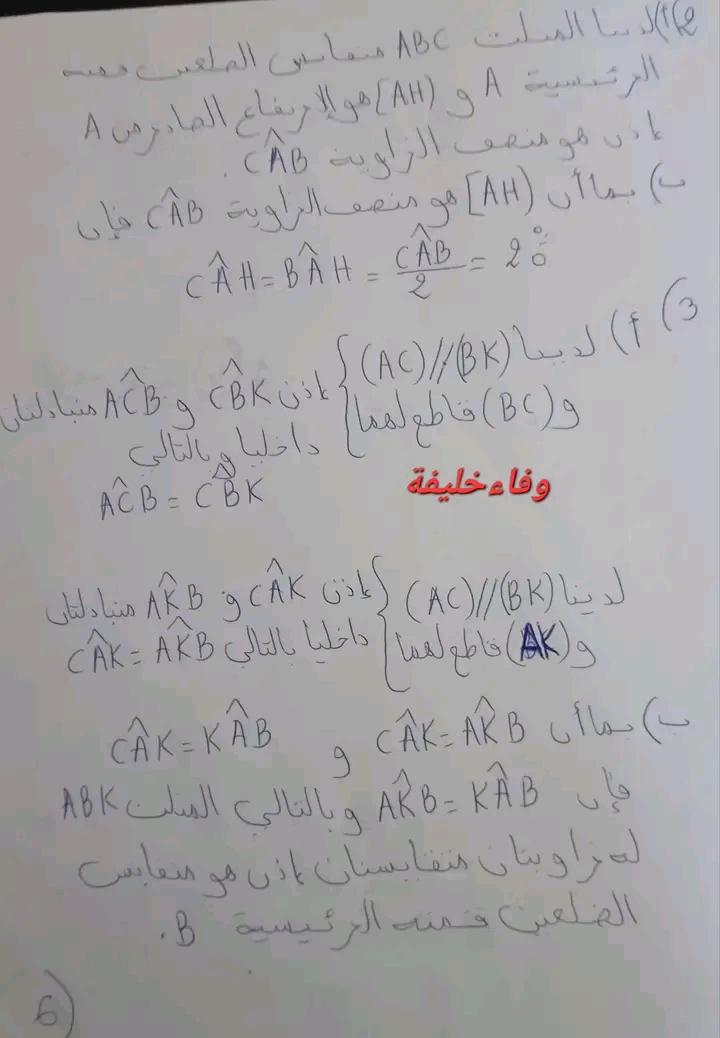 2) أ) لدينا المثلث ABC متقايس الضلعين قمته
الرئيسية A و [AH) هو الإرتفاع الصادر من A
إذن هو منصف الزاوية CÂB.
ب) بما أن [AH) هو منصف الزاوية CÂB فإن
CÂH = BÂH = CÂB/2 = 20°
3) أ) لدينا (AC)//(BK)
و (BC) قاطع لهما
إذن CB̂K و AĈB متبادلتان
داخليا وبالتالي
AĈB = CB̂K
وفاء خليفة
لدينا (AC)//(BK)
و (AK) قاطع لهما
إذن CÂK و AK̂B متبادلتان
داخليا بالتالي CÂK = AK̂B
ب) بما أن CÂK = AK̂B و CÂK = KÂB
فإن AK̂B = KÂB وبالتالي المثلث ABK
له زاويتان متقايستان إذن هو متقايس
الضلعين قمته الرئيسية B.
6)